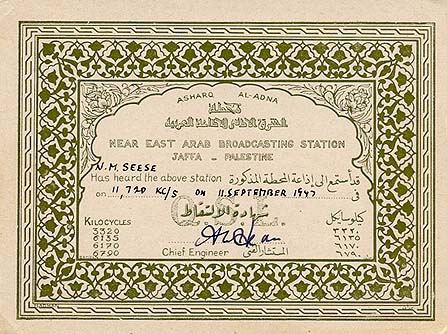 ASHARQ AL-ADNA
محطة
الشرق الادنى للاذاعة العربية
NEAR EAST ARAB BROADCASTING STATION
JAFFA - PALESTINE
N.M. SEESE
Has heard the above station قد أستمع الى إذاعة المحطة المذكورة
on 11,720 KC/S on 11 SEPTEMBER 1947 في
Q.S.L.
شهادة الالتقاط
KILOCYCLES كيلوسايكل
3320 ٣٣٢٠
6135 ٦١٣٥
6170 ٦١٧٠
6790 ٦٧٩٠
Chief Engineer المستشار الفني